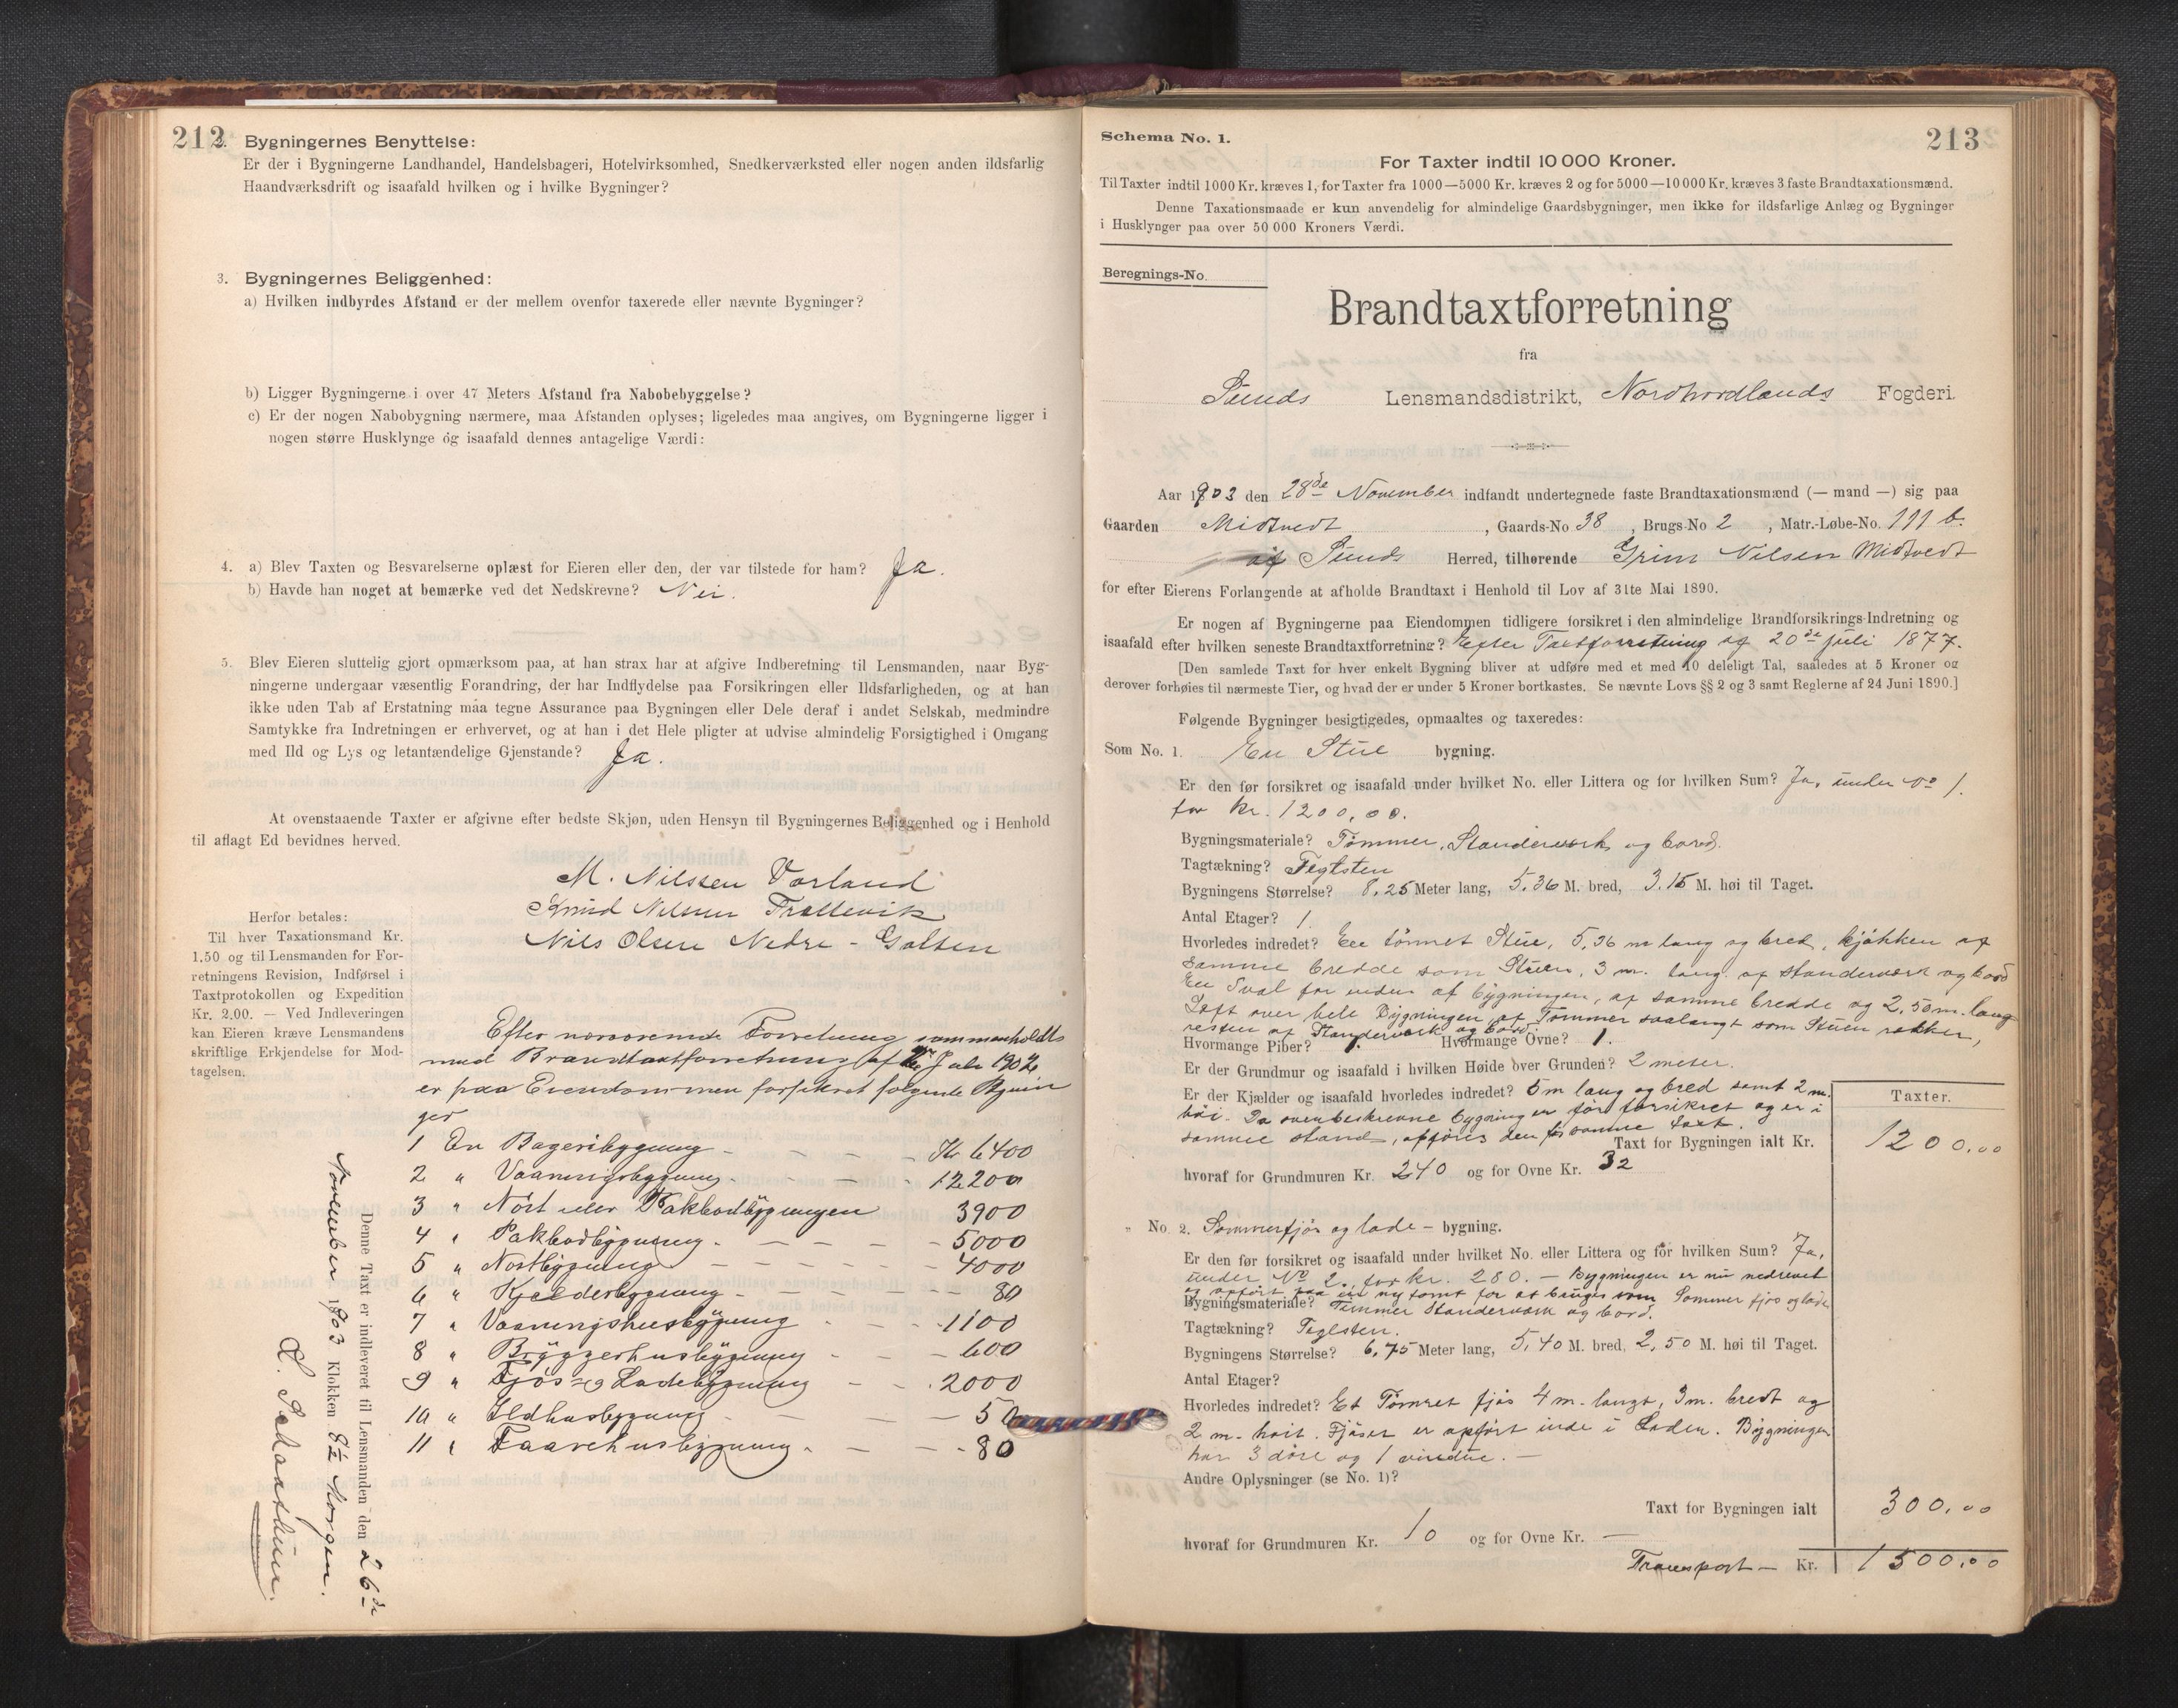 212
2. Bygningernes Benyttelse:
Er der i Bygningerne Landhandel, Handelsbageri, Hotelvirksomhed, Snedkerværksted eller nogen anden ildsfarlig
Haandværksdrift og isaafald hvilken og i hvilke Bygninger?
3. Bygningernes Beliggenhed:
a) Hvilken indbyrdes Afstand er der mellem ovenfor taxerede eller nævnte Bygninger?
b) Ligger Bygningerne i over 47 Meters Afstand fra Nabobebyggelse?
c) Er der nogen Nabobygning nærmere, maa Afstanden oplyses; ligeledes maa angives, om Bygningerne ligger i
nogen større Husklynge og isaafald dennes antagelige Værdi:
4. a) Blev Taxten og Besvarelserne oplæst for Eieren eller den, der var tilstede for ham? Ja.
b) Havde han noget at bemærke ved det Nedskrevne? Nei.
5. Blev Eieren sluttelig gjort opmærksom paa, at han strax har at afgive Indberetning til Lensmanden, naar Byg-
ningerne undergaar væsentlig Forandring, der har Indflydelse paa Forsikringen eller Ildsfarligheden, og at han
ikke uden Tab af Erstatning maa tegne Assurance paa Bygningen eller Dele deraf i andet Selskab, medmindre
Samtykke fra Indretningen er erhvervet, og at han i det Hele pligter at udvise almindelig Forsigtighed i Omgang
med Ild og Lys og letantændelige Gjenstande? Ja.
At ovenstaaende Taxter er afgivne efter bedste Skjøn, uden Hensyn til Bygningernes Beliggenhed og i Henhold
til aflagt Ed bevidnes herved.
M. Nilssen Vorland
Knud Nilsen Trællevik
Nils Olsen Nedre - Golten
Herfor betales:
Til hver Taxationsmand Kr.
1.50 og til Lensmanden for For-
retningens Revision, Indførsel i
Taxtprotokollen og Expedition
Kr. 2.00. — Ved Indleveringen
kan Eieren kræve Lensmandens
skriftlige Erkjendelse for Mod-
tagelsen.
Efter nærværende Forretning sammenholdt
med Brandtaxtforretning af Juli 1902
er paa Eiendommen forsikret følgende Bygnin
ger
1 En Bageribygning - - - - Kr 6400
2 " Vaaningsbygning - - - - 12200
3 " Nöst eller Pakbodbygningen 3900
4 " Pakbodbygning - - - - 5000
5 " Nostbygning - - - - - 4000
6 " Kjelderbygning - - - - - 80
7 " Vaaningshusbygning - - - 1100
8 " Bryggerhusbygning - - 600
9 " Fjös- og Ladebygning - - 2000
10 " Ildhusbygning - - - 50
11 " Faarehusbygning - - - 80
Denne Taxt er indleveret til Lensmanden den 26de
November 1903 Klokken 8½ Morgen.
213
Schema No. 1.
For Taxter indtil 10 000 Kroner.
Til Taxter indtil 1000 Kr. kræves 1, for Taxter fra 1000—5000 Kr. kræves 2 og for 5000—10 000 Kr. kræves 3 faste Brandtaxationsmænd.
Denne Taxationsmaade er kun anvendelig for almindelige Gaardsbygninger, men ikke for ildsfarlige Anlæg og Bygninger
i Husklynger paa over 50 000 Kroners Værdi.
Beregnings-No.
Brandtaxtforretning
fra
Sunds Lensmandsdistrikt, Nordhordlands Fogderi.
Aar 1903 den 28de November indfandt undertegnede faste Brandtaxationsmænd (— mand —) sig paa
Gaarden Midtvedt, Gaards-No 38, Brugs-No 2, Matr.-Løbe-No. 111 b.
af Sunds Herred, tilhørende Grim Nilsen Midtvedt
for efter Eierens Forlangende at afholde Brandtaxt i Henhold til Lov af 31te Mai 1890.
Er nogen af Bygningerne paa Eiendommen tidligere forsikret i den almindelige Brandforsikrings-Indretning og
isaafald efter hvilken seneste Brandtaxtforretning? Efter Taxtforretning af 20de juli 1877.
[Den samlede Taxt for hver enkelt Bygning bliver at udføre med et med 10 deleligt Tal, saaledes at 5 Kroner og
derover forhøies til nærmeste Tier, og hvad der er under 5 Kroner bortkastes. Se nævnte Lovs §§ 2 og 3 samt Reglerne af 24 Juni 1890.]
Følgende Bygninger besigtigedes, opmaaltes og taxeredes:
Som No. 1. En Stue bygning.
Er den før forsikret og isaafald under hvilket No. eller Littera og for hvilken Sum? Ja, under No 1.
for kr. 1200,00.
Bygningsmateriale? Tømmer, Standerværk og bord.
Tagtækning? Teglsten
Bygningens Størrelse? 8,25 Meter lang, 5,36 M. bred, 3.15 M. høi til Taget.
Antal Etager? 1.
Hvorledes indredet? En tømret Stue, 5,36 m lang og bred, kjøkken af
samme bredde som Stuen, 3 m. lang. af standerværk og bord
En Sval for enden af bygningen, af samme bredde og 2,50 m. lang
Loft over hele Bygningen af Tømmer saalangt som Stuen rækker,
resten af Standerværk og bord.
Hvormange Piber? 1. Hvormange Ovne? 1.
Er der Grundmur og isaafald i hvilken Høide over Grunden? 2 meter.
Er der Kjælder og isaafald hvorledes indredet? 5 m lang og bred samt 2 m.
høi. Da ovenbeskrevne bygning er før forsikret og er i
samme stand, opføres den for samme taxt.
Taxter.
Taxt for Bygningen ialt Kr. 1200.00
hvoraf for Grundmuren Kr. 240 og for Ovne Kr. 32
" No. 2. Sommerfjøs og lade - bygning.
Er den før forsikret og isaafald under hvilket No. eller Littera og for hvilken Sum? Ja,
under No 2. for kr. 280. — Bygningen er nu nedrevet
og opført paa en ny tomt for at bruges som Sommer fjøs og lade
Bygningsmateriale? Tømmer Standerværk og bord.
Tagtækning? Teglsten.
Bygningens Størrelse? 6,75 Meter lang, 5,40 M. bred, 2,50 M. høi til Taget.
Antal Etager?
Hvorledes indredet? Et Tømret fjøs 4 m. langt, 3 m. bredt og
2 m. høit. Fjøset er opført inde i Laden. Bygningen
har 3 døre og 1 vindue. —
Andre Oplysninger (se No. 1)?
Taxt for Bygningen ialt 300.00
hvoraf for Grundmuren Kr. 10 og for Ovne Kr. —
Transport — Kr. 1500.00